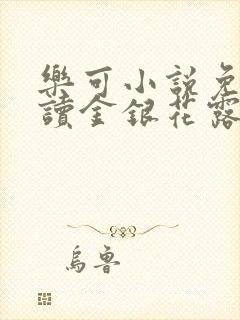 樂可小說免
讀金銀花露
烏魯